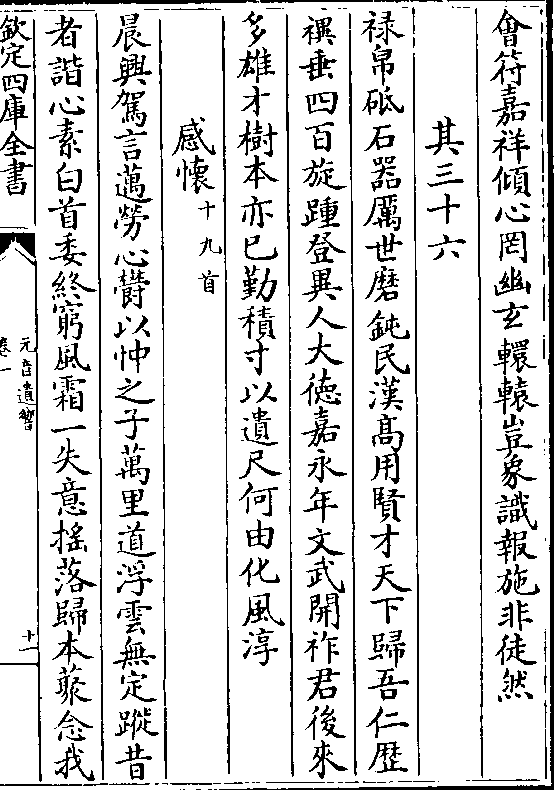 會符嘉祥傾心罔幽玄轘轅豈象識報施非徒然
其三十六
禄帛砥石器厲世磨鈍民漢髙用賢才天下歸吾仁歴
禩垂四百旋踵登異人大徳嘉永年文武開祚君後來
多雄才樹本亦已勤積寸以遺尺何由化風淳
感懷十九首
晨興駕言邁勞心欝以忡之子萬里道浮雲無定蹤昔
者諧心素白首委終窮風霜一失意摇落歸本藂念我
欽定四庫全書
元音遺響
卷一
十一